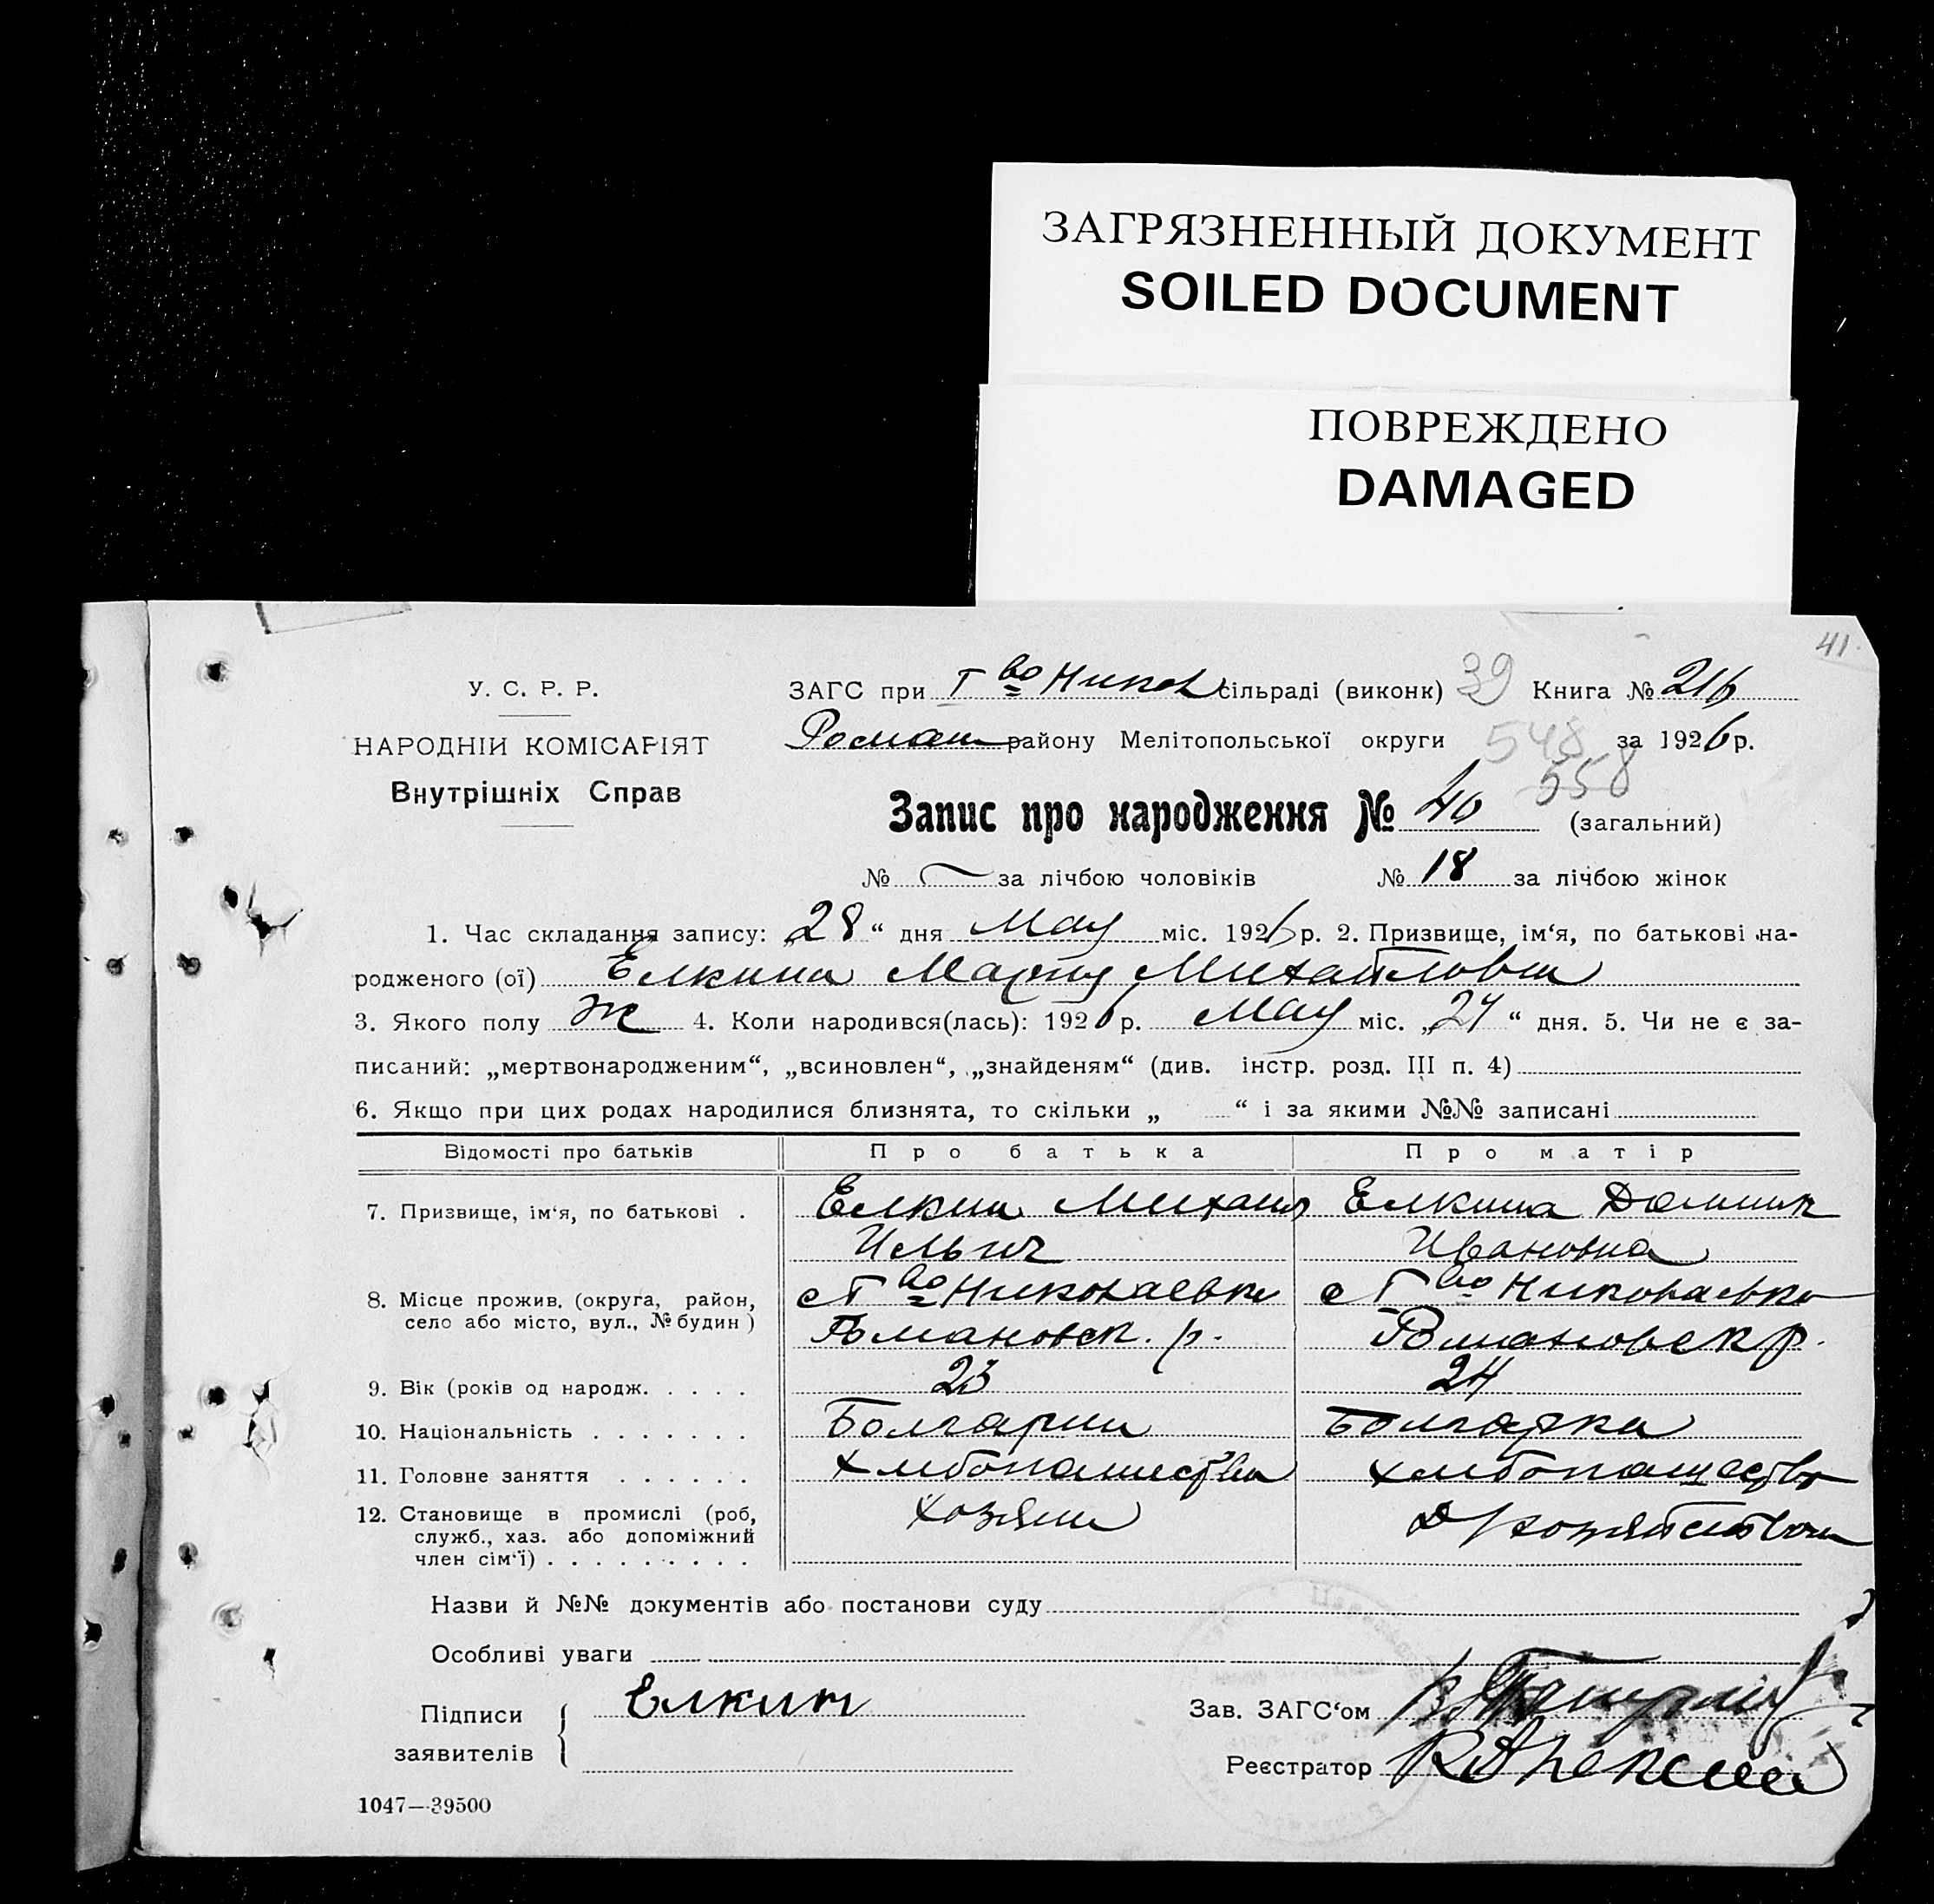 ЗАГРЯЗНЕННЫЙ ДОКУМЕНТ
SOILED DOCUMENT
ПОВРЕЖДЕНО
DAMAGED
41
У. С. Р. Р.
НАРОДНІЙ КОМІСАРІЯТ
Внутрішніх Справ
ЗАГС при Т во Никол сільраді (виконк) 39 Книга № 216
Роман району Мелітопольської округи 548 за 1926 р.
558
Запис про народження № 40 (загальний)
№ за лічбою чоловіків № 18 за лічбою жінок
1. Час складання запису: „28“ дня Мая міс. 1926 р. 2. Призвище, ім‘я, по батькові на-
родженого (ої) Елкина Михайловна
3. Якого полу ж 4. Коли народився(лась): 1926 р. Мая міс. „24“ дня. 5. Чи не є за-
писаний: „мертвонародженим“, „всиновлен“, „знайденям“ (див. інстр. розд. III п. 4)
6. Якщо при цих родах народилися близнята, то скільки „ “ і за якими №№ записані
Відомості про батьків Про батька Про матір
7. Призвище, ім‘я, по батькові . Елкин Михаил Елкина
Ильич Ивановна
8. Місце прожив. (округа, район, с Т во Николаевка с Т во Николаевка
село або місто, вул., № будин) Романовск. р. Романовск р.
9. Вік (років од народж. . . . . 23 24
10. Національність . . . . . . . Болгарин Болгарка
11. Головне заняття . . . . . . хлебопашество хлебопашество
12. Становище в промислі (роб, хозяин
служб., хаз. або допоміжний
член сім‘ї) . . . . . . . . .
Назви й №№ документів або постанови суду
Особливі уваги
Підписи Елкин Зав. ЗАГС‘ом
заявителів Реєстратор
1047—39500